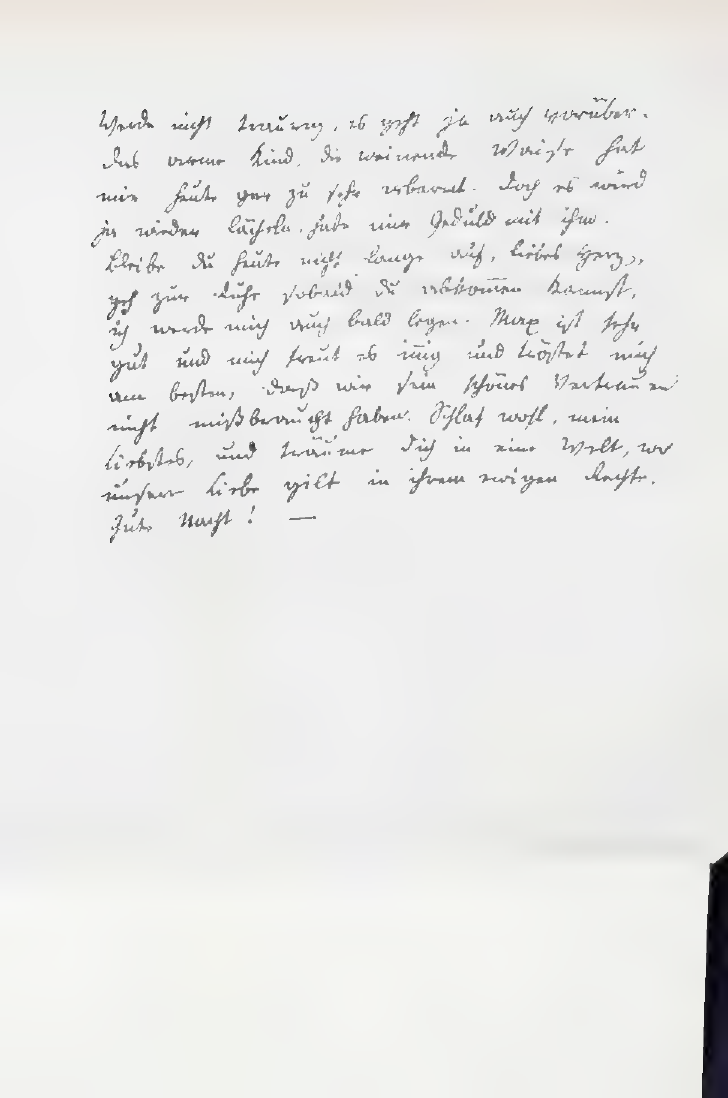 Werde nicht traurig, es geht ja auch vorüber.
Das arme Kind, die weinende Waise hat
mir heute gar zu sehr erbarmt. Doch es wird
ja wieder lächeln, habe nur Geduld mit ihm.
Bleibe du heute nicht lange auf, liebes Herz,
geh zur Ruhe sobald du abkom̅en kannst,
ich werde mich auch bald legen. Max ist sehr
gut und mich freut es in̅ig und tröstet mich
am besten, daß wir sein schönes Vertrauen
nicht mißbraucht haben. Schlaf wohl, mein
Liebstes, und träume dich in eine Welt, wo
unsere Liebe gilt in ihrem ewigen Rechte.
Gute Nacht! —